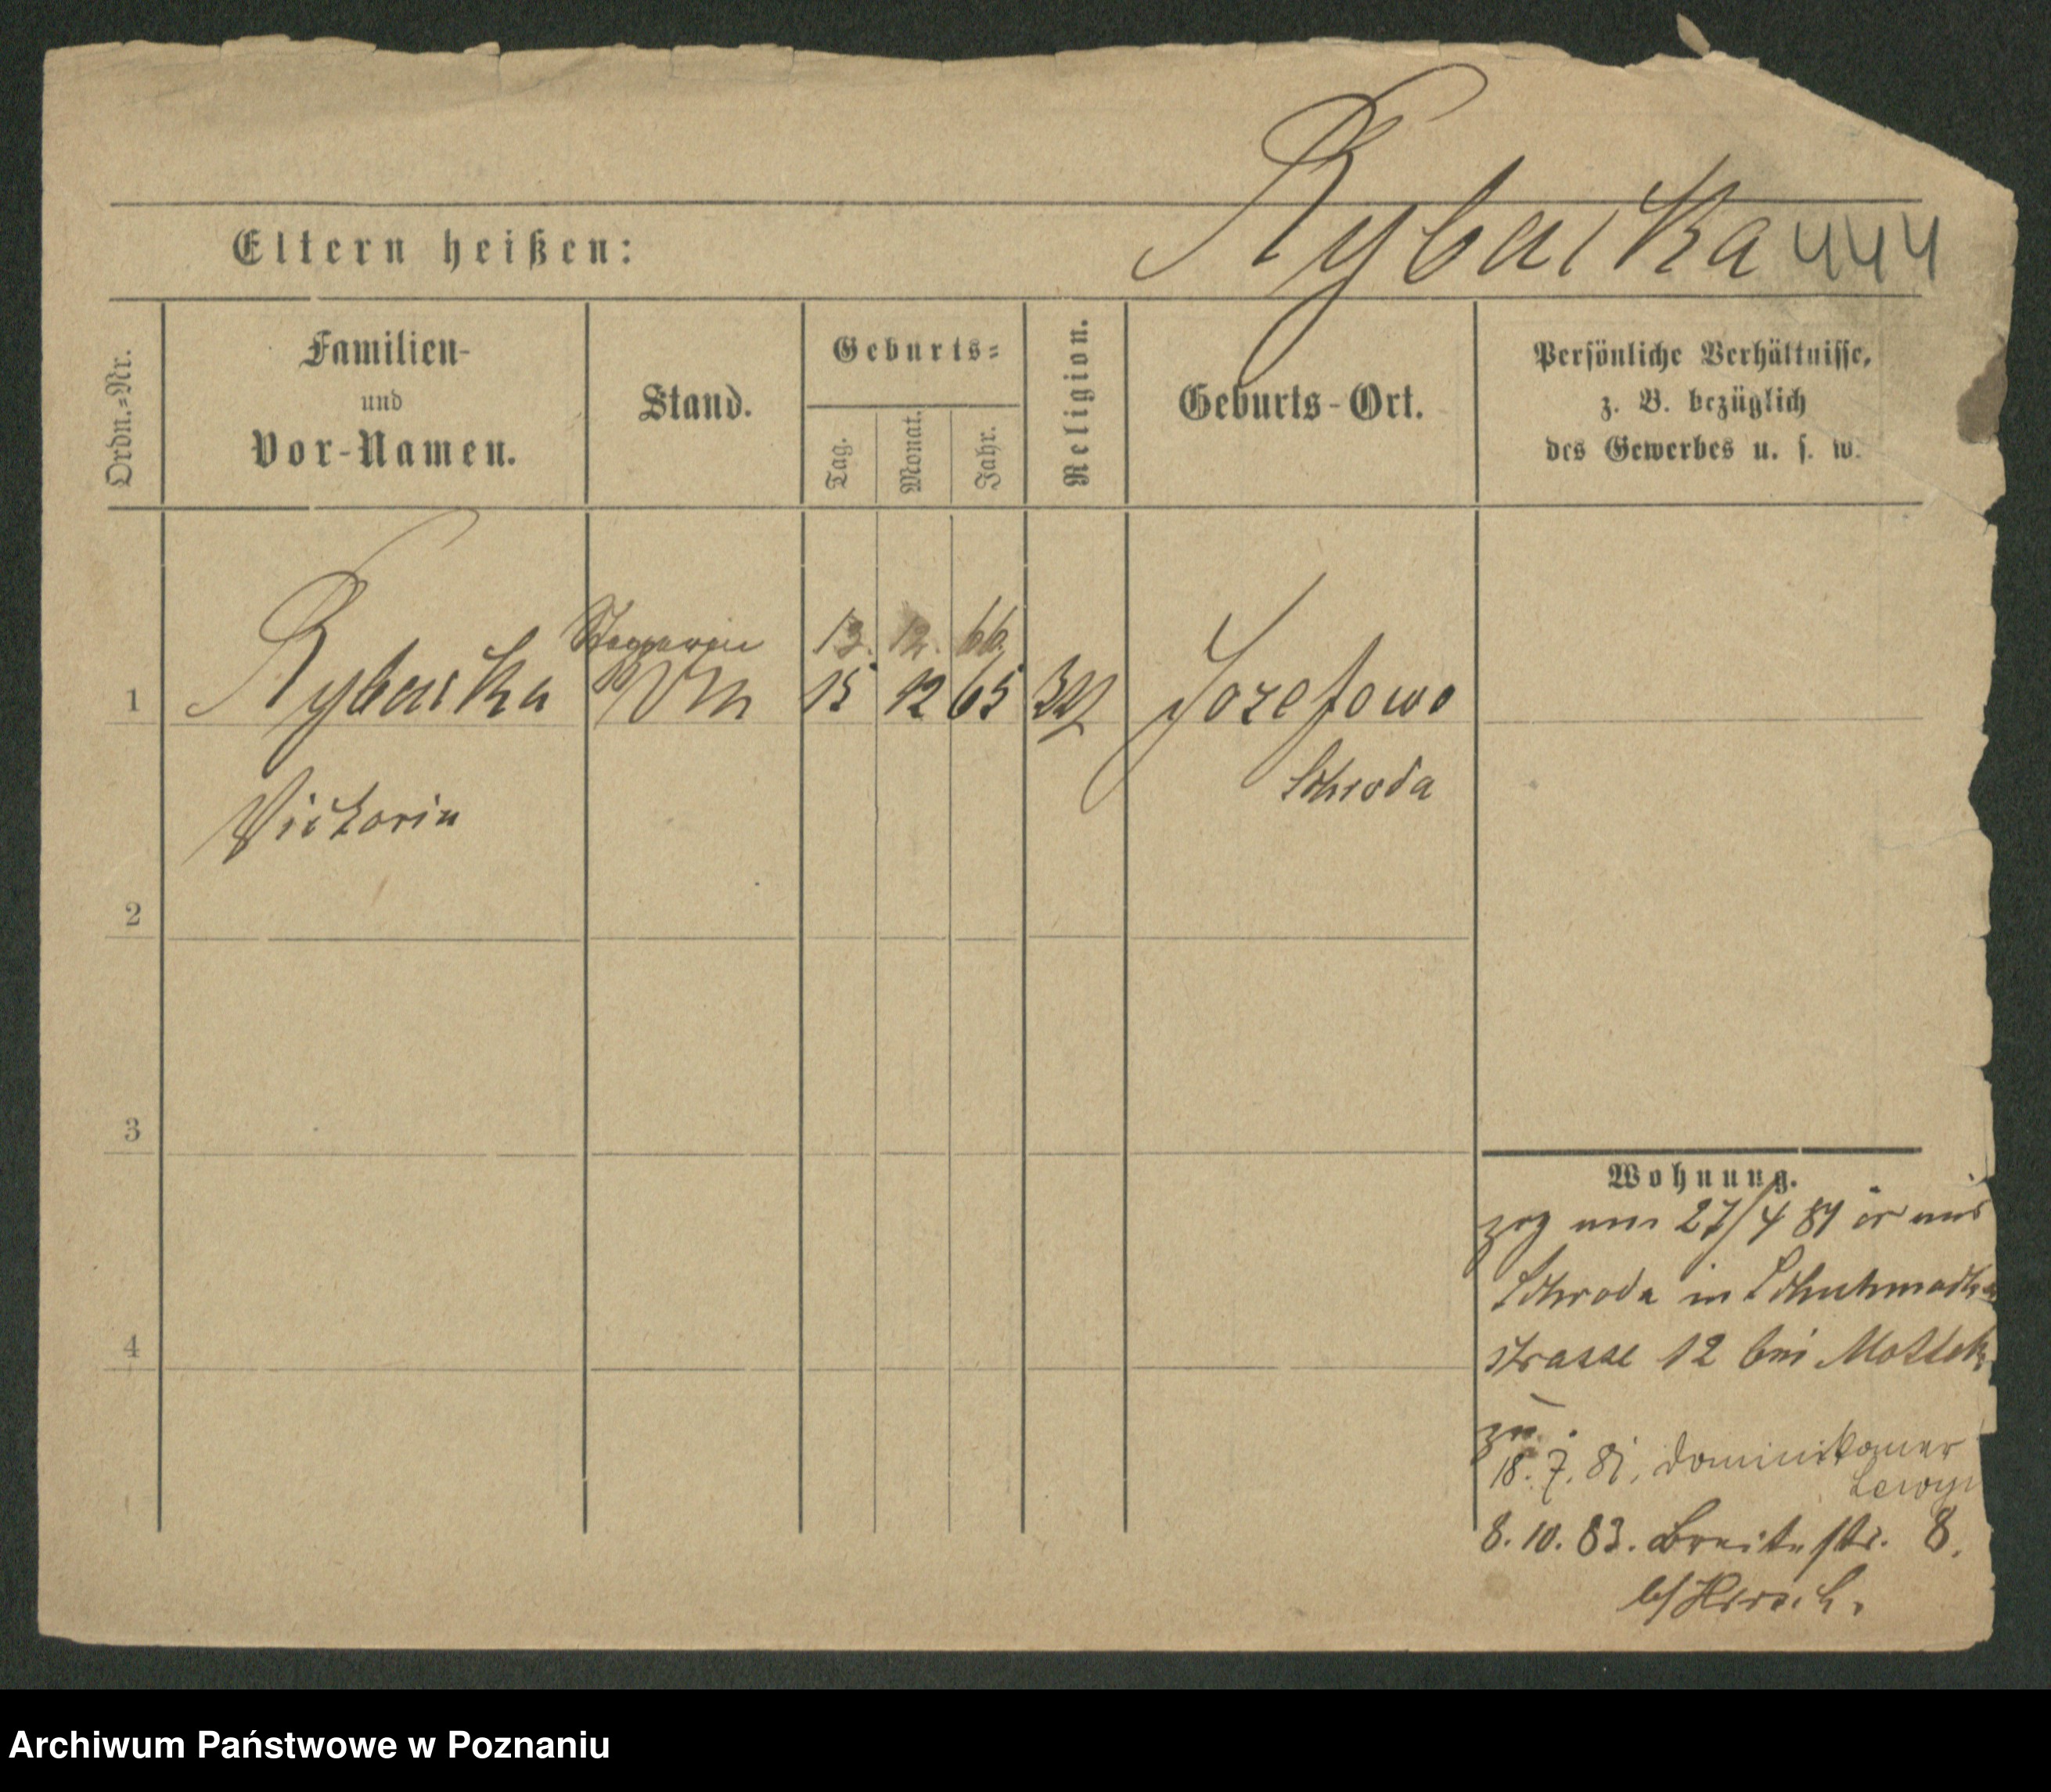 Rybarska 444
Eltern heißen:
Ordn.=Nr.
Familien-
und
Vor-Namen.
Stand.
Geburts=
Tag.
Monat.
Jahr.
Religion.
Geburts-Ort.
Persönliche Verhältnisse,
z. B. bezüglich
des Gewerbes u. s. w.
13. 12. 66.
1
15 12 65
Jozefowo
Schroda
Victoria
2
3
4
Wohnung.
zog am 27/4 81 aus
Schroda in Schuhmacher
strasse 12 bei
zu.
18. 7. 81. Dominikaner
8. 10. 83. Breitestr. 8.
b/ Hirsch.
Archiwum Państwowe w Poznaniu